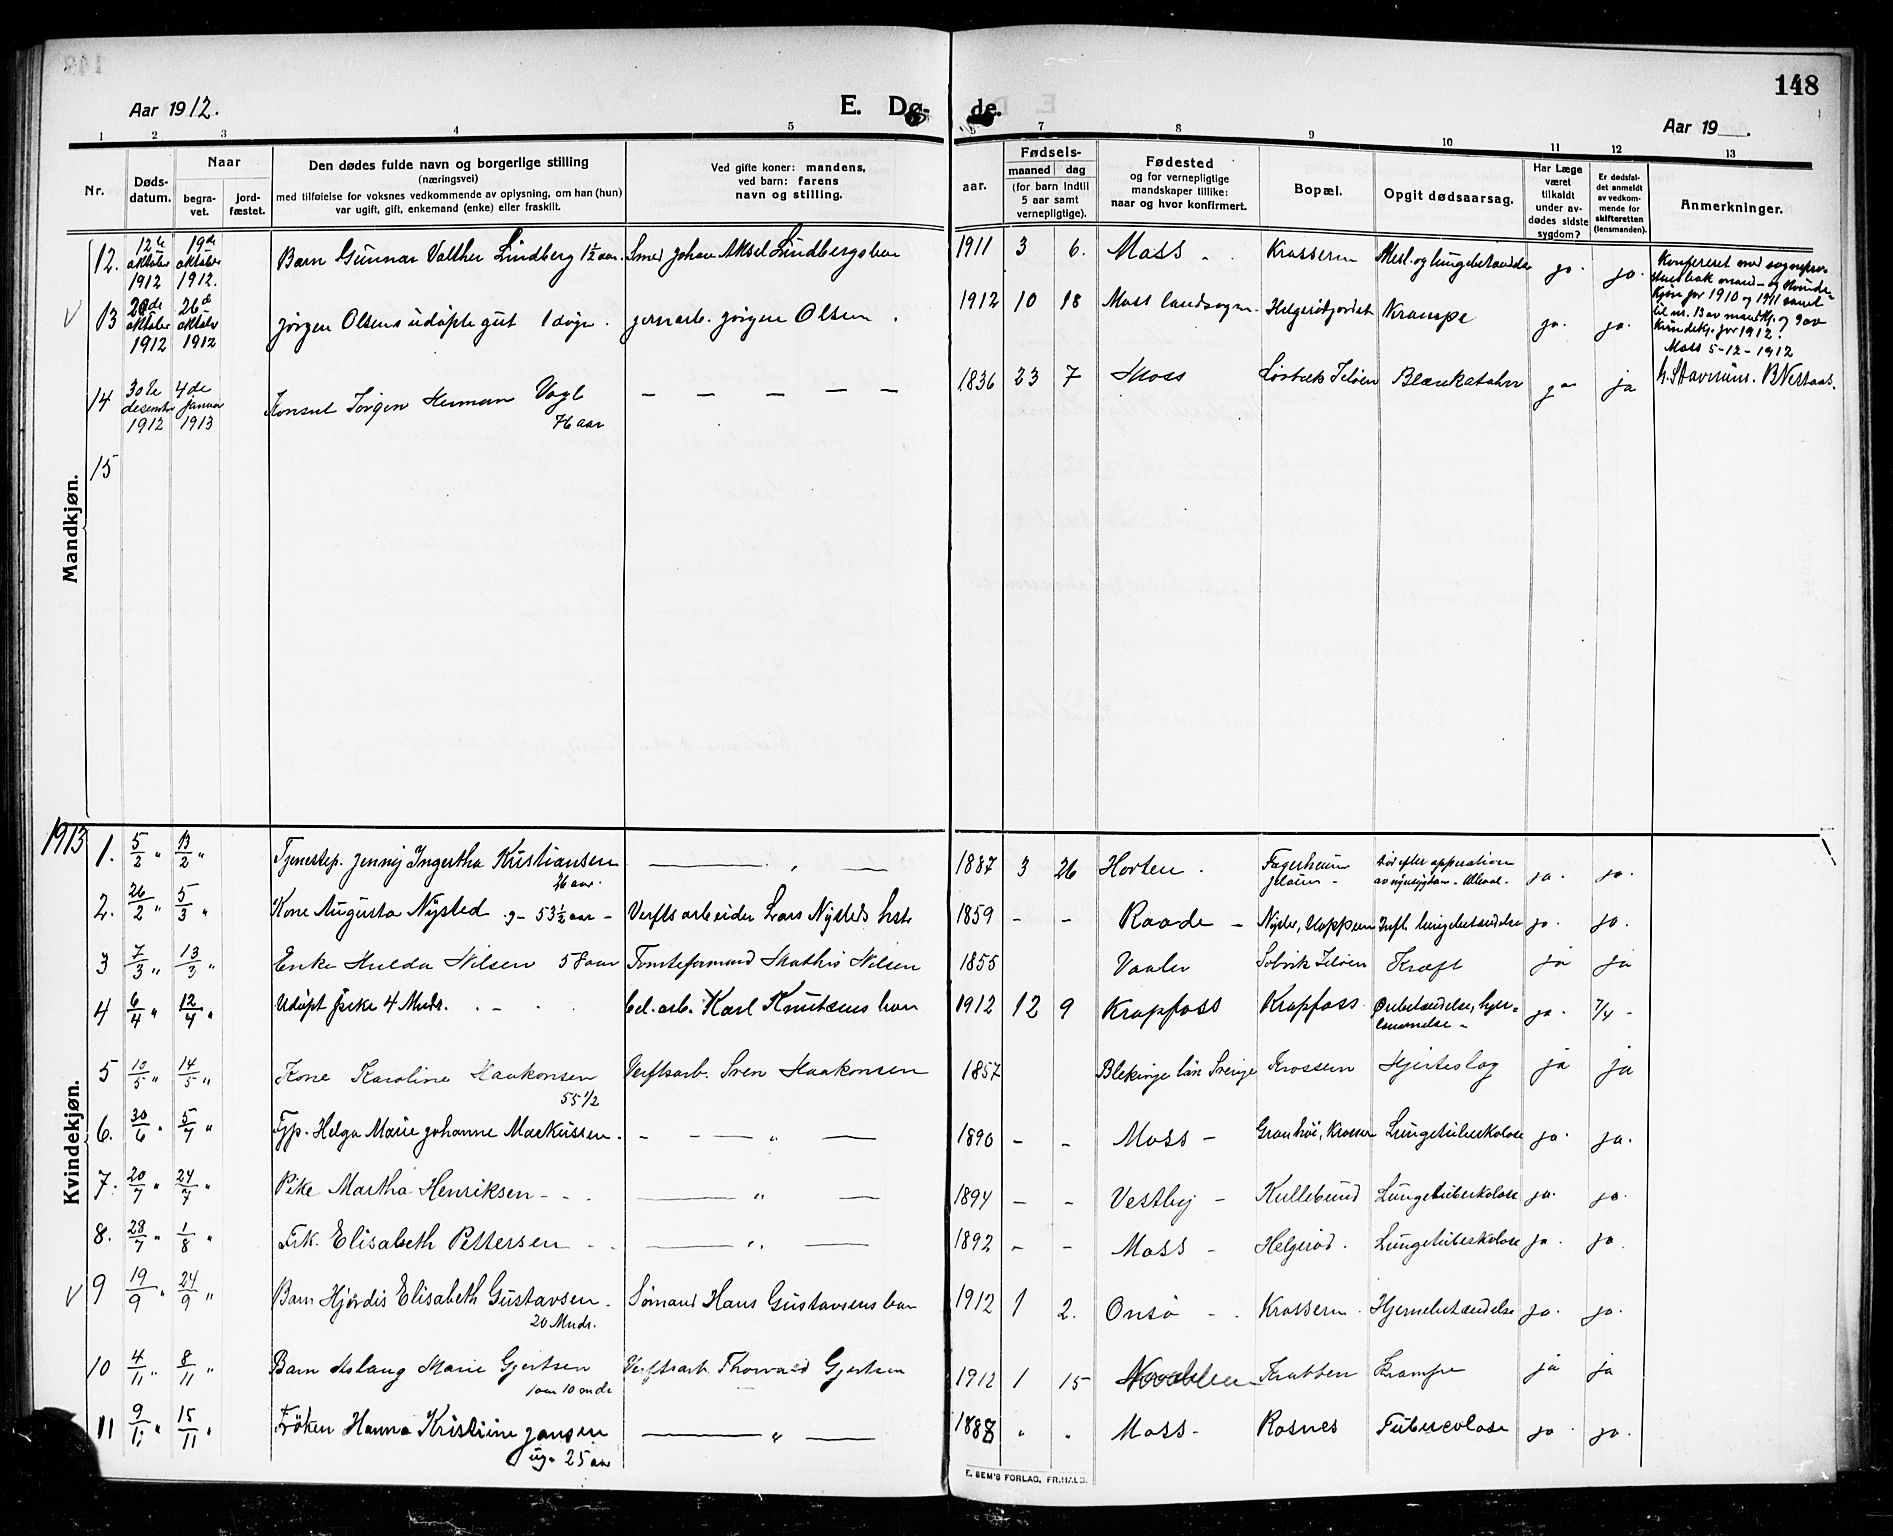 148
Aar 1912.
E. Dø- de.
Aar 19__.
1 2 3 4 5 7 8 9 10 11 12 13
Nr.
Døds-
datum.
Naar
begra-
vet.
jord-
fæstet.
Den dødes fulde navn og borgerlige stilling
(næringsvei)
med tilføielse for voksnes vedkommende av oplysning, om han (hun)
var ugift, gift, enkemand (enke) eller fraskilt.
Ved gifte koner: mandens,
ved barn: farens
navn og stilling.
aar.
Fødsels-
maaned dag
(for barn indtil
5 aar samt
vernepligtige).
Fødested
og for vernepligtige
mandskaper tillike:
naar og hvor konfirmert.
Bopæl.
Opgit dødsaarsag.
Har Læge
været
tilkaldt
under av-
dødes sidste
sygdom?
Er dødsfal-
det anmeldt
av vedkom-
mende for
skifteretten
(lensmanden).
Anmerkninger.
Mandkjøn.
12. 12te oktober 1912 19de oktober 1912. Barn Gunnar Valther Lindberg 1½ aar. Smed Johan Aksel Lindbergs barn 1911 3 6. Moss Krossern Mesl. og lungebetændelse ja. ja.
13 26de oktober 1912 Jørgen Olsens udøpte gut 1 døgn. jernarb. Jørgen Olsen. 1912 10 18 Moss landsogn. Helgerødfjordet Krampe ja. ja.
14 30te desember 1912 4de januar 1913 Konsul Jörgen Herman Vogt 76 aar — — — — 1836 23 7 Moss Jeløen ja ja
15
Konfereret med
og kvinde-
kjøn for 1910 og 1911 samt
til nr. 13 av mandkj. og 9 av
kvindekj. for 1912.
Moss 5-12-1912
Kvindekjøn.
1913
1. 5/2 " 13/2 " Tjenestep. Jenny Ingertha Kristiansen 26 aar. 1887 3 26 Horten. Fagerheim Jeløen - Död efter opperation ja. ja.
2. 26/2 " 5/3 " Kone Augusta Nysted g- 53½ aar - Verftsarbeider Lars Nysteds hst. 1859 - - Raade - lungebetændelse ja. ja.
3 7/3 " 13/3 " Enke Hulda Nilsen 58 aar Tomteformand Mathis Nilsen 1855 Vaaler Solvik Jeløen Kræft ja ja
4 6/4 " 12/4 " Udöpt pike 4 Mndr. Karl Knutsens barn 1912 12 9 Krapfoss Krapfoss. ja. 7/4 -
5 10/5 " 14/5 " Kone Karoline Haakonsen 55 1/2 Verftsarb. Sven Haakonsen 1857 Blekinge län Sverige Krossern Hjerteslag ja ja
6. 30/6 " 5/7 " Tjp. Helga Marie Johanne Markussen. 1890 - - Moss - Granhöi, Krosser Lungetuberkolose ja. ja.
7. 20/7 " 24/7 " Pike Martha Henriksen - 1894 - - Vestby - Kullebund Lungetuberkolose ja. ja.
8. 28/7 " 1/8 " Frk. Elisabeth Pettersen 1892 - - Moss - Helgerød. Lungetuberkolose ja. ja.
9 19/9 " 24/9 " Barn Hjördis Elisabeth Gustavsen. 20 Mndr. Sömand Hans Gustavsens barn 1912 1 2. Onsö Krossern. Hjernebetændelse ja. ja.
10 4/11 " 8/11 " Barn Aslaug Marie Gjertsen 1 aar 10 mndr Verftsarb. Thorvald Gjertsen 1912 1 15 Krabben Krampe ja ja
11 9/11 " 15/11 " Fröken Hanna Kristiine Jansen ug. 25 aar 1888 " " Moss - Rosnes Tuberculose ja ja.
E. SEM'S FORLAG, FR.HALD.